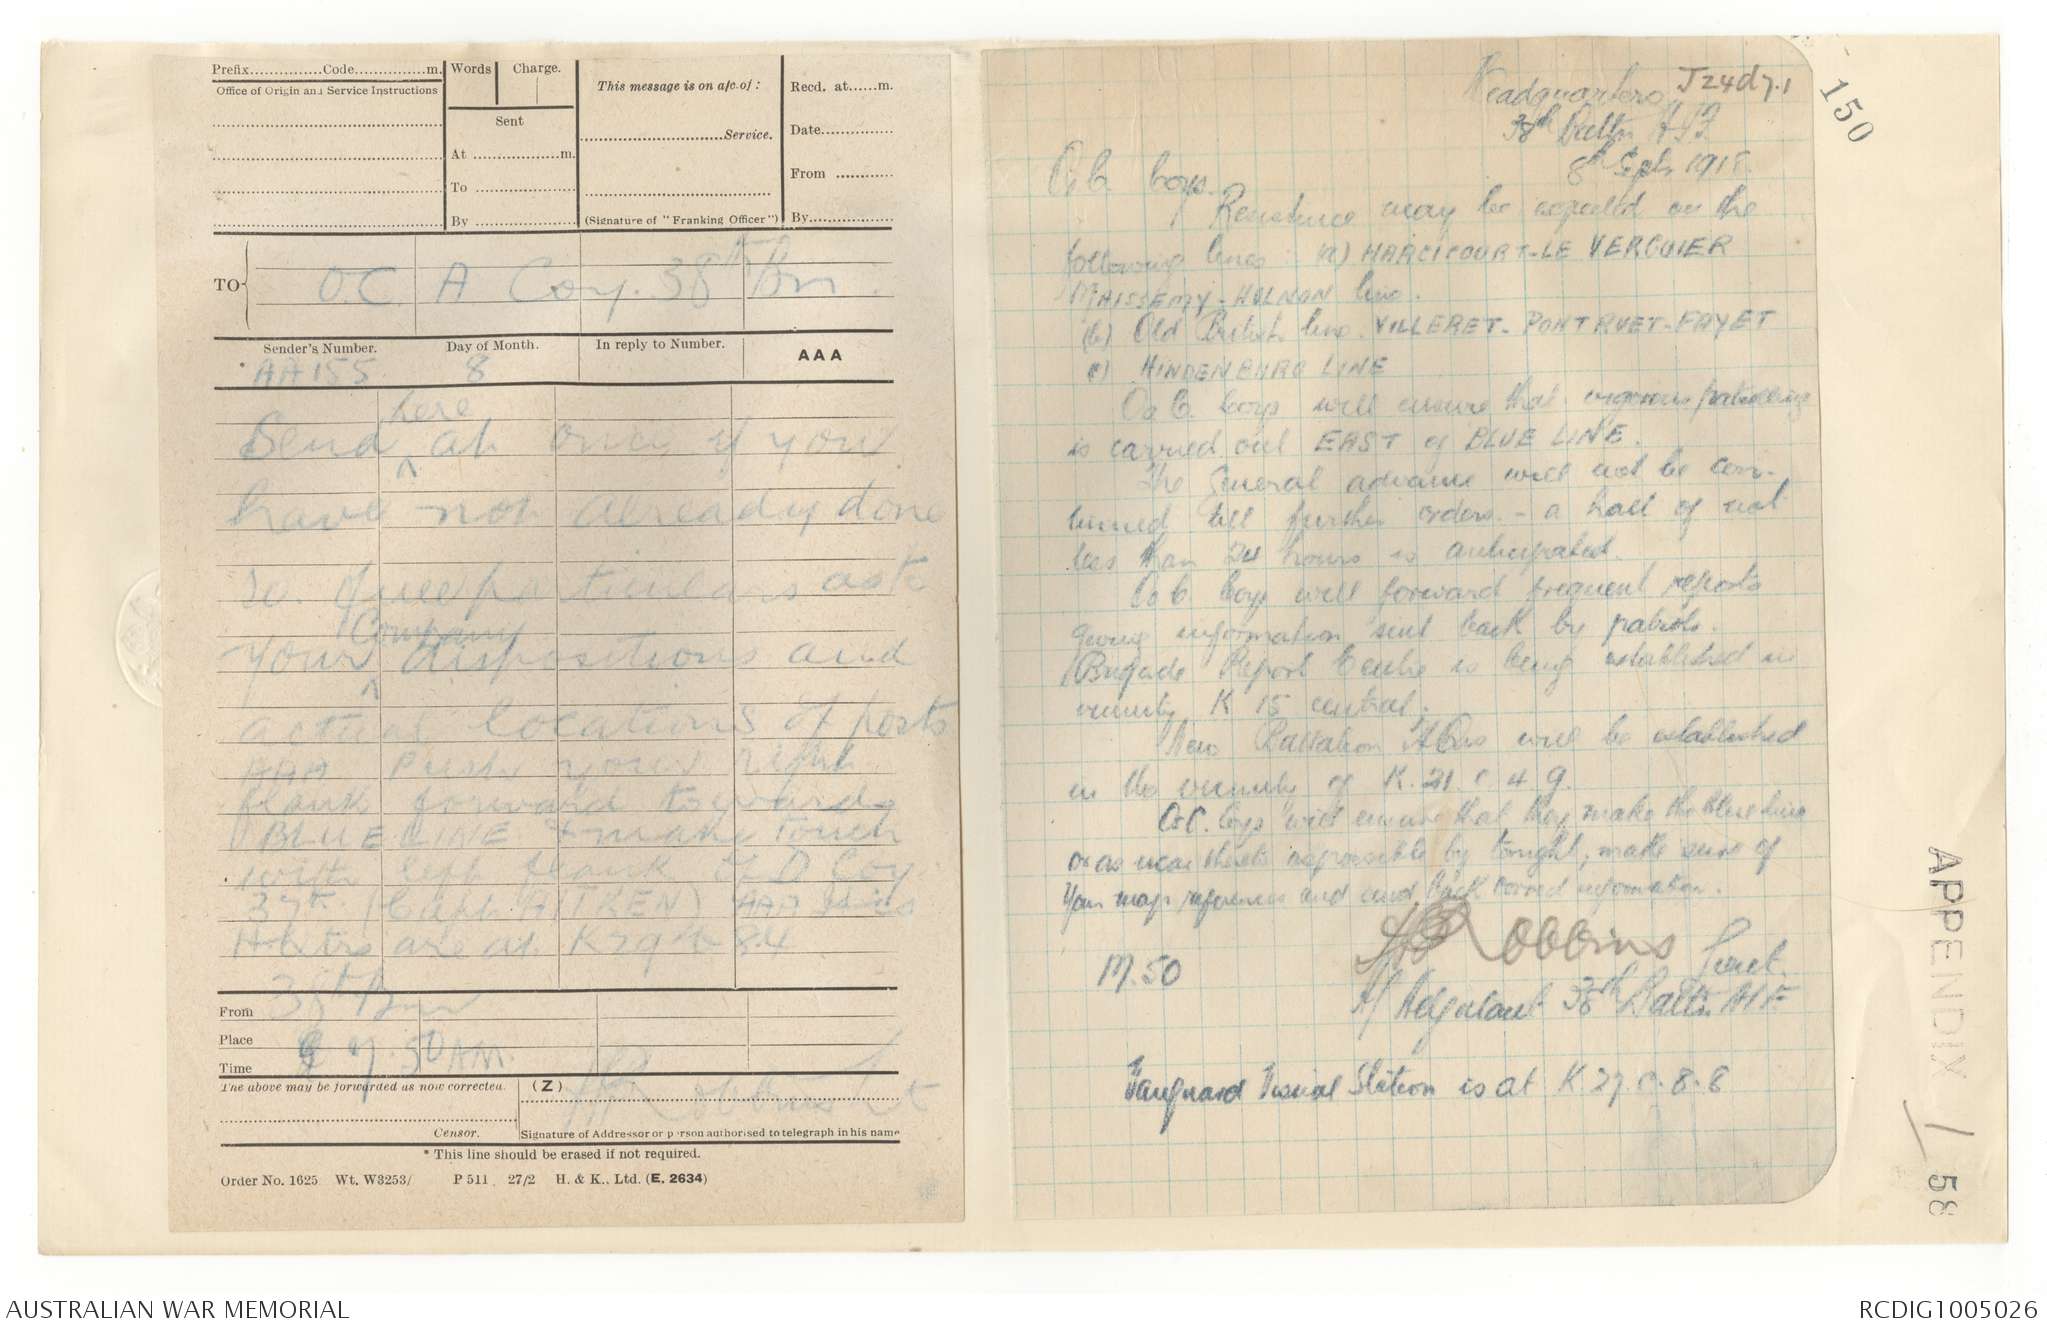 Prefix...............Code...............m.
Office of Origin and Service Instructions
Words
Charge.
Sent
At ..................m.
To ..................
By ..................
This message is on a/c of :
..............................Service.
(Signature of "Franking Officer")
Recd. at......m.
Date...............
From ............
By...............
TO
O.C. A Coy. 38th Bn.
Sender's Number.
Day of Month.
In reply to Number.
AAA
AA155
8
here
Send ^ at once if you
have not already done
so full particulars as to
Company
your ^ dispositions and
actual locations of posts
AAA Push your right
flank forward towards
BLUE LINE & make touch
with left flank of D Coy
37th (Capt AITKEN) AAA
Hqtrs are at K29 b 8.4
From 38th Bn
Place
Time 7.50 AM.
The above may be forwarded as now corrected.
(Z)
Robbins Lt
Censor.
Signature of Addressor or person authorised to telegraph in his name
* This line should be erased if not required.
Order No. 1625 Wt. W3253/ P 511 27/2 H. & K., Ltd. (E. 2634)
J24d7.1
Headquarters
38th Battn AIF
8th Sept 1918.
O.C. Coys.
Resistance may be expected on the
following lines (a) HARGICOURT-LE VERGUIER
MAISSEMY-HOLNON line.
(b) Old British line. VILLERET-PONTRUET-FAYET
c) HINDENBURG LINE
Os C. Coys will ensure that vigorous patrolling
is carried out EAST of BLUE LINE.
The General advance will not be con-
tinued till further orders - a halt of not
less than 24 hours is anticipated.
Os C. Coys will forward frequent reports
giving information sent back by patrols.
Brigade Report Centre is being established in
vicinity K 15 central.
New Battalion HQrs will be established
in the vicinity of K.21.c.4.9.
O.C. Coys will ensure that they make the blue line
or as near thereto as possible by tonight, make sure of
your map references and send back correct information.
Robbins Lieut.
M.50
A/ Adjutant 38th Battn AIF
Vanguard Visual Station is at K.27.c.8.8
150
APPENDIX 1/58
AUSTRALIAN WAR MEMORIAL
RCDIG1005026